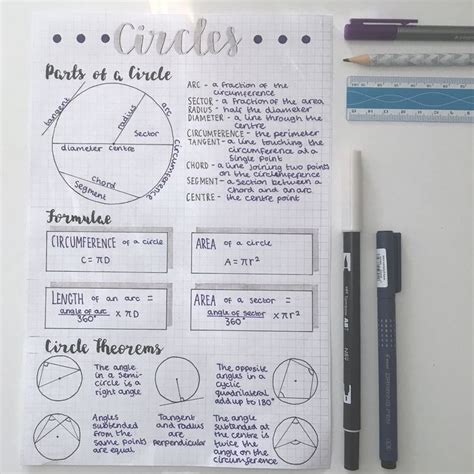 Circles
Parts of a Circle
tangent
radius
arc
Sector
diameter centre
circumference
Chord
Segment
ARC - a fraction of the
circumference
SECTOR - a fraction of the area
RADIUS - half the diameter
DIAMETER - a line through the
centre
CIRCUMFERENCE - the perimeter
TANGENT - a line touching the
circumference at a
single point
CHORD - a line joining two points
on the circumference
SEGMENT - a section between a
chord and an arc
CENTRE - the centre point
Formulae
CIRCUMFERENCE of a circle
C = πD
AREA of a circle
A = πr²
LENGTH of an arc =
angle of arc
360° × πD
AREA of a sector =
angle of sector
360° × πr²
Circle Theorems
The angle
in a semi-
circle is a
right angle
The opposite
angles in a
cyclic
quadrilateral
add up to 180°
Angles
subtended
from the
same points
are equal
Tangent
and radius
are
perpendicular
The angle
subtended at
the centre is
twice the
angle on the
circumference